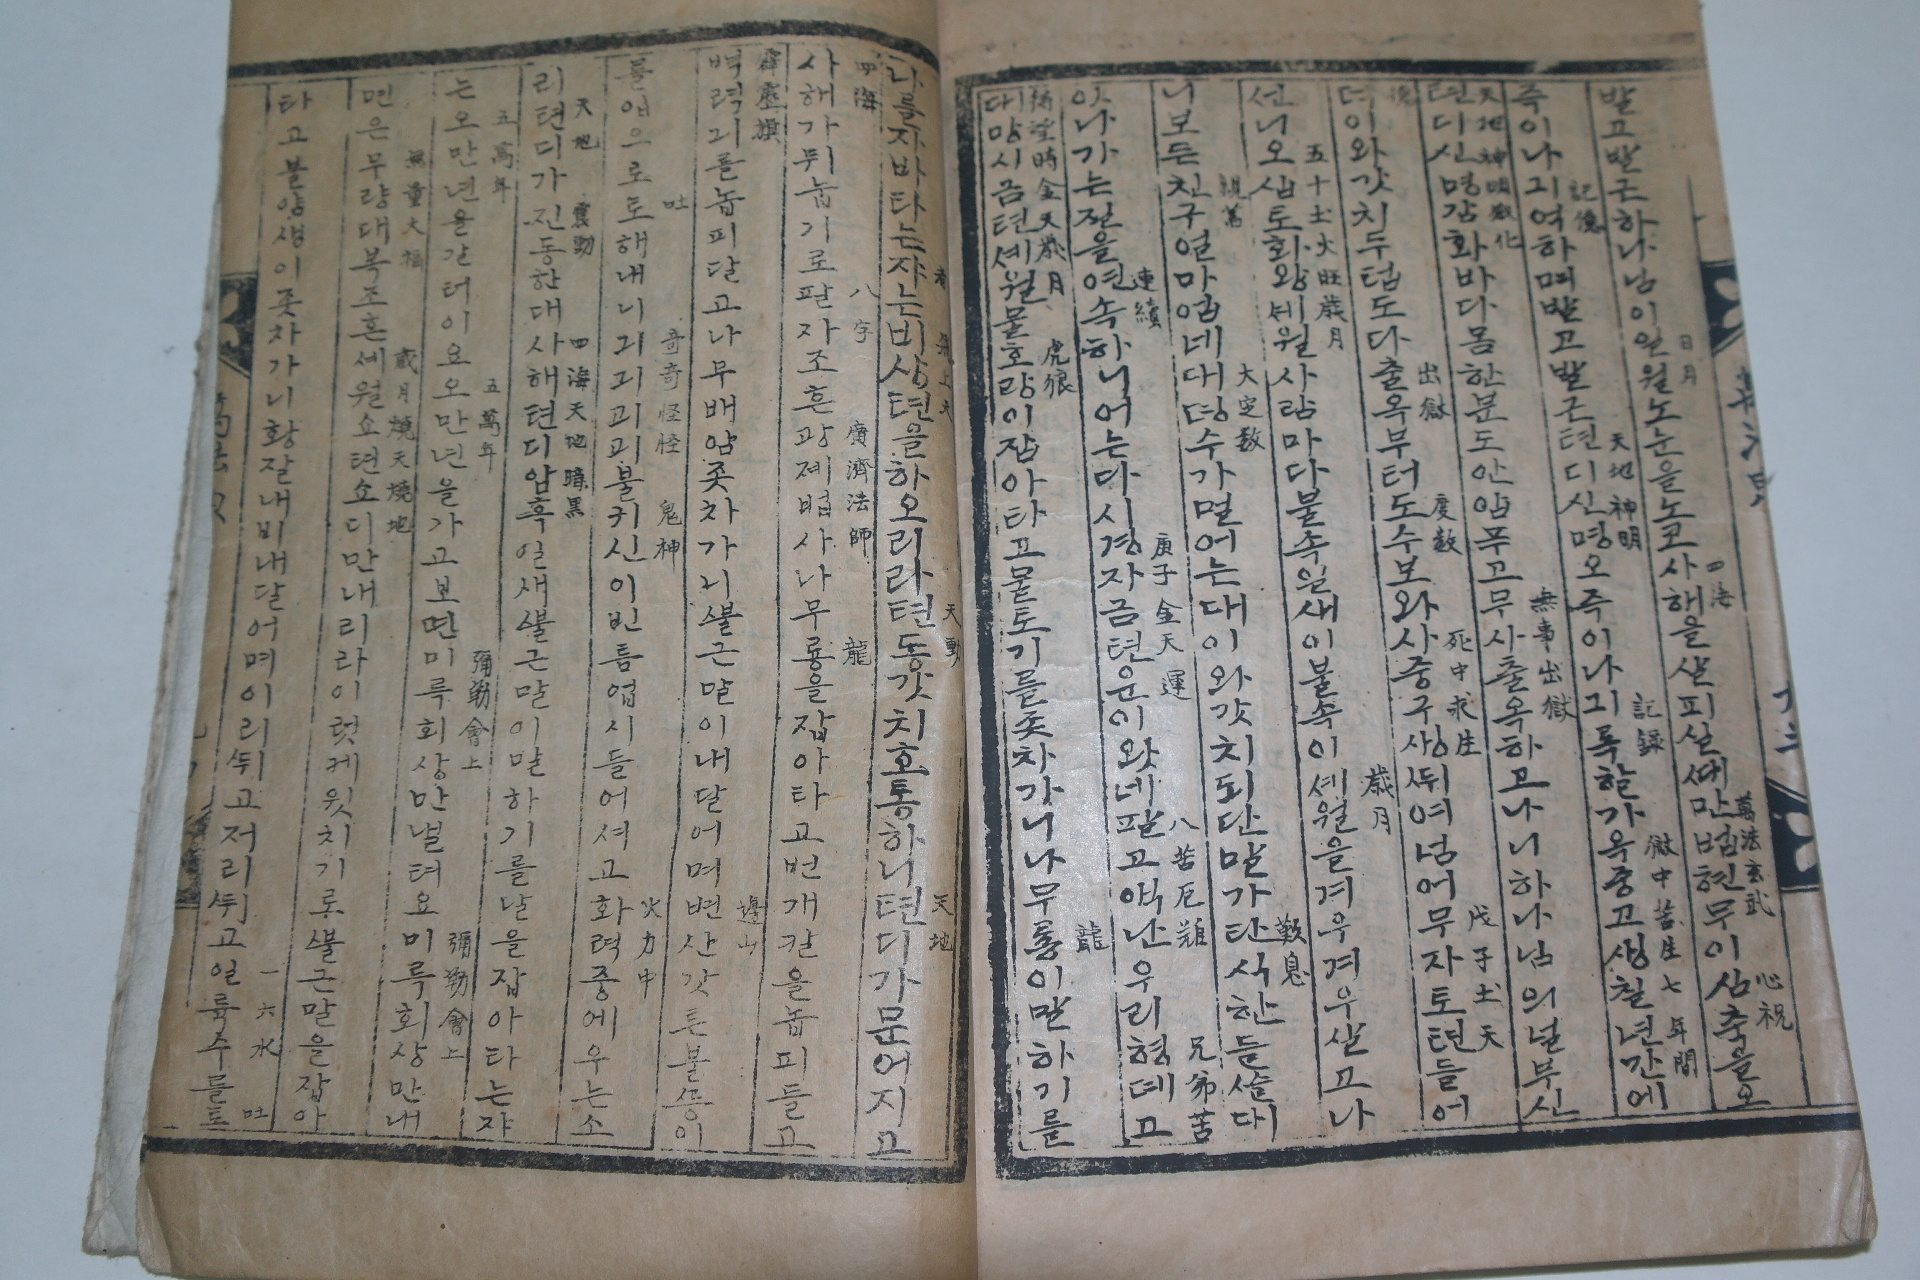 발고발근하나님이일월노눈을노코사해을살피실세만법현무이심축을오
日月 四海 萬法玄武 心祝
즉이나긔여하며발고발근텬디신명오즉이나긔록할가옥중고생칠년간에
記憶 天地神明 記録 獄中苦生七年間
텬디신명감화바다몸한분도안암푸고무사츌옥하고나니하나님의널부신
天地神明感化 無事出獄
덕이와갓치두텁도다출옥부터도수보와사중구생뛰여넘어무자토텬들어
德 出獄 度數 死中求生 戊子土天
션니오십토화왕세월사람마다불속일새이불속이셰월을겨우겨우살고나
五十土火旺歲月 歲月
니보든친구얼마업네대뎡수가멀어는대이와갓치되단말가탄식한들쓸대
親舊 大定數 歎息
잇나가는젼을연속하니어는다시경자금텬운이왓네팔고액난우리형뎨고
連續 庚子金天運 八苦厄難 兄弟苦
다망시금텬셰월물호랑이잡아타고물토기를쫏차가니나무룡이말하기를
待望時金天歲月 虎狼 龍
나를자바타는쟈는비상텬을하오리라텬동갓치호통하니텬디가문어지고
者 飛上天 天動 天地
사해가뒤눕기로팔자조흔광졔법사나무룡을잡아타고번개칼을놉피들고
四海 八字 廣濟法師 龍
벽력긔를놉피달고나무배암쫏차가니붉근말이내달어며변산갓튼불뭉이
霹靂旗 邊山
를입으로토해내니긔긔괴괴불귀신이빈틈업시들어셔고화력중에우는소
吐 奇奇怪怪 鬼神 火力中
리텬디가진동한대사해텬디암흑일새붉근말이말하기를날을잡아타는쟈
天地 震動 四海天地暗黑
는오만년을간터이요오만년을가고보면미륵회상만널터요미륵회상만내
五萬年 五萬年 彌勒會上 彌勒會上
면은무량대복조흔셰월소텬소디만내리라이럿케윗치기로붉근말을잡아
無量大福 歲月燒天燒地
타고불양생이쫏차가니황잘내비내달어며이리뛰고저리뛰고일륙수를토
一六水 吐